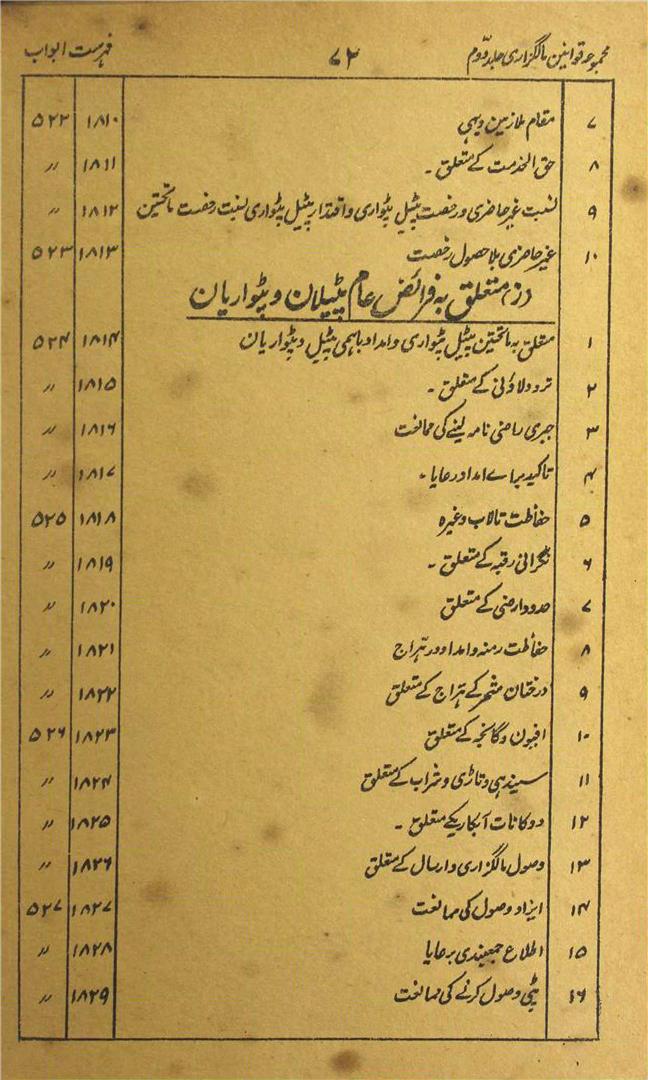 مجموعہ قوانین مالگزاری جلد دوّم ۷۲ فہرست ابواب
۷ مقام ملازمین دیہی ۱۸۱۰ ۵۲۲
۸ حق الخدمت کے متعلق ۔ ۱۸۱۱ 〃
۹ نسبت غیر حاضری و رخصت پٹیل پٹواری و اقتدار پٹیل پٹواری نسبت رخصت ماتحتین ۱۸۱۲ 〃
۱۰ غیر حاضری بلا حصول رخصت ۱۸۱۳ ۵۲۳
(ز) متعلق بہ فرائض عام پٹیلان و پٹواریان
۱ متعلق بہ ماتحتین پٹیل پٹواری و امداد باہمی پٹیل و پٹواریان ۱۸۱۴ ۵۲۴
۲ تردد لاونی کے متعلق ۔ ۱۸۱۵ 〃
۳ جبری راضی نامہ لینے کی ممانعت ۱۸۱۶ 〃
۴ تاکید براے امداد رعایا ۔ ۱۸۱۷ 〃
۵ حفاظت تالاب وغیرہ ۱۸۱۸ ۵۲۵
۶ نگرانی رقبہ کے متعلق ۔ ۱۸۱۹ 〃
۷ حدود ارضی کے متعلق ۱۸۲۰ 〃
۸ حفاظت رمنہ و امداد در ہراج ۱۸۲۱ 〃
۹ درختان مثمر کے ہراج کے متعلق ۱۸۲۲ 〃
۱۰ افیون و گانجہ کے متعلق ۱۸۲۳ ۵۲۶
۱۱ سیندہی و تاڑی و شراب کے متعلق ۱۸۲۴ 〃
۱۲ دوکانات آبکاری کے متعلق ۔ ۱۸۲۵ 〃
۱۳ وصول مالگزاری و ارسال کے متعلق ۱۸۲۶ 〃
۱۴ ایزاد وصول کی ممانعت ۱۸۲۷ ۵۲۷
۱۵ اطلاع جمعبندی بر عایا ۱۸۲۸ 〃
۱۶ پٹی وصول کرنے کی ممانعت ۱۸۲۹ 〃